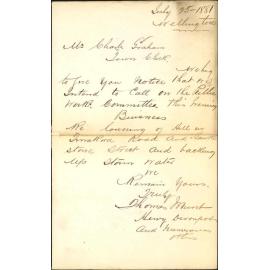 July 25 - 1881
Wellington
Mr Charles Graham
Town Clerk
We beg
to give You Notice that we
Intend to Call on the Public
Works Committee this Evening
Business
We lowering of Hill in
Road And
Stone Street And backing
Up Storm Water
We
Remain Yours
Truly
Thomas
Henry Devonport
And Numerous
others